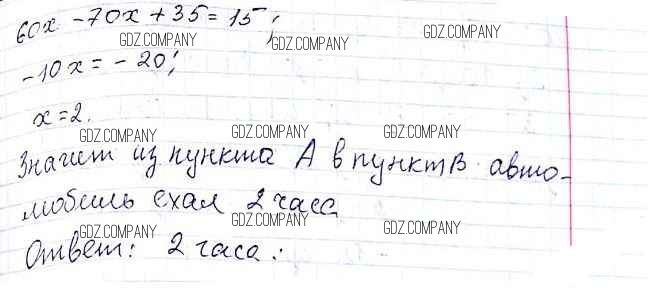 60x - 70x + 35 = 15;
GDZ.COMPANY GDZ.COMPANY GDZ.COMPANY
-10x = -20;
x = 2.
GDZ.COMPANY GDZ.COMPANY GDZ.COMPANY
Значит из пункта A в пункт B авто-
мобиль ехал 2 часа
GDZ.COMPANY GDZ.COMPANY GDZ.COMPANY
Ответ: 2 часа.